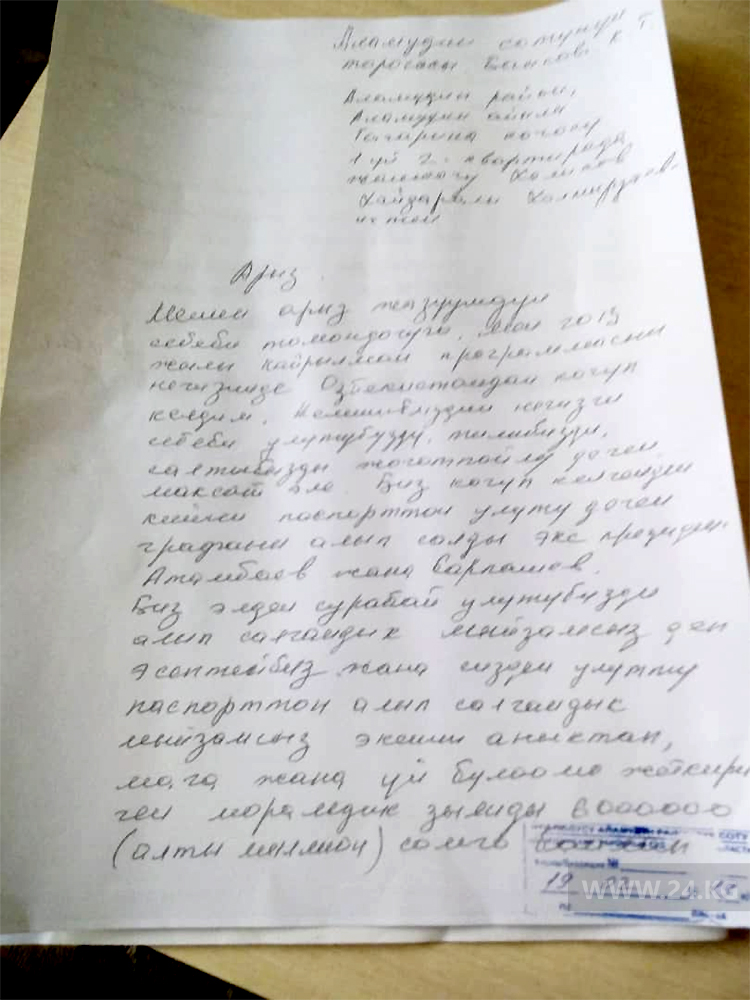 Аламудин сотунун
төрагасы К. Т.
Аламудин район,
Аламудин айылы
Гагарина көчөсү
1 үй 2 - квартирада
жашаган Халиков
Хайдарали
Арыз
Менин арыз жазуумдун
себеби төмөндөгүчө. Мен 2015
жылы кайрылман программасынын
негизинде Өзбекистандан көчүп
келдим. Келишибиздин негизги
себеби улутубузду, тилибизди,
салтыбызды жоготпойлу деген
максат эле. Биз көчүп келгенден
кийин паспорттон улуту деген
графаны алып салды экс президент
Атамбаев жана Сарпашев.
Биз элден сурабай улутубузду
алып салгандык мыйзамсыз деп
эсептейбиз жана сизден улутту
паспорттон алып салгандык
мыйзамсыз экенин аныктап,
мага жана үй бүлөөмө жеткири
ген моралдик зыянды 6000000
(алты миллион) сомго
СОТУ
№
19
www.24.kg